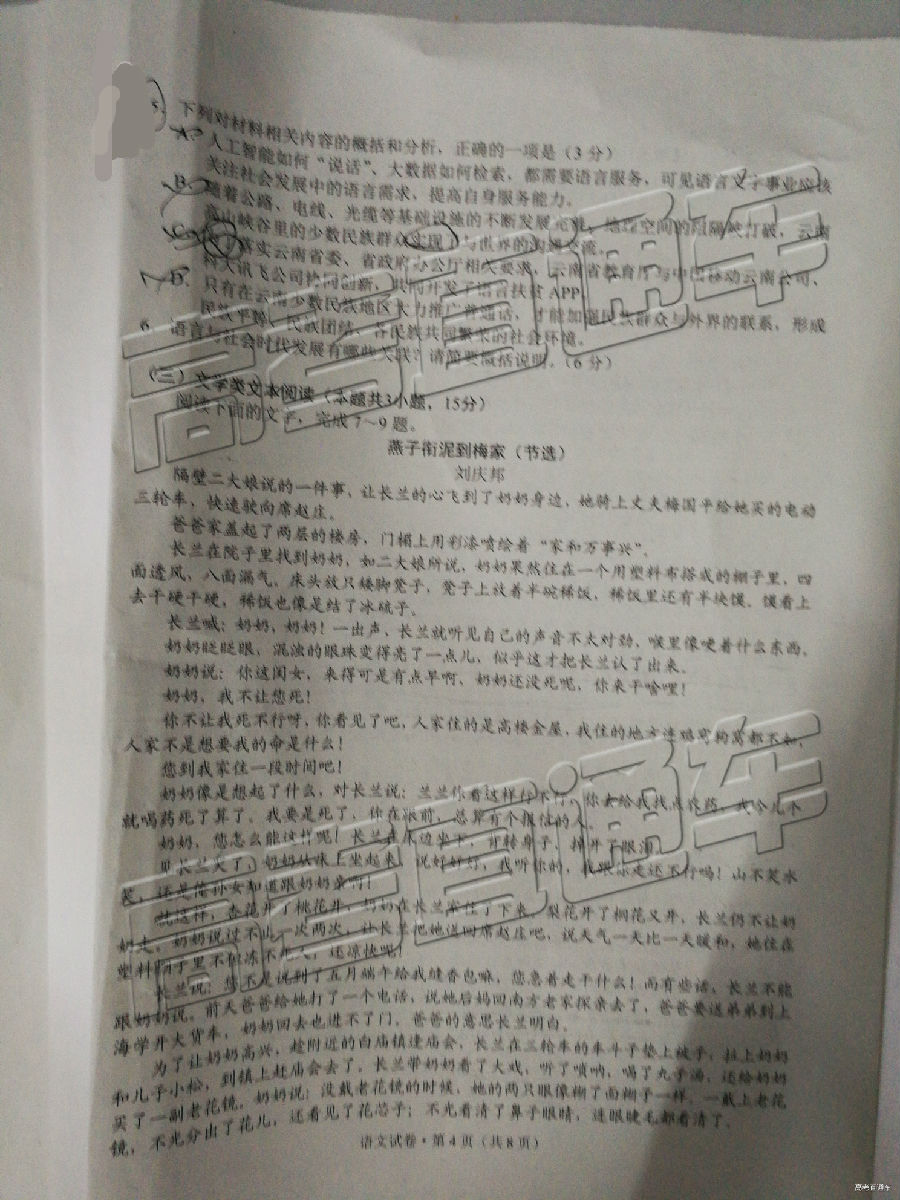 5. 下列对材料相关内容的概括和分析，正确的一项是（3分）
A. 人工智能如何“说话”，大数据如何检索，都需要语言服务，可见语言文字事业应该
关注社会发展中的语言需求，提高自身服务能力。
B. 随着公路、电线、光缆等基础设施的不断发展完善，地理空间的阻隔被打破，云南
高山峡谷里的少数民族群众实现了与世界的沟通交流。
C. 为落实云南省委、省政府办公厅相关要求，云南省教育厅与中国移动云南公司、
科大讯飞公司协同创新，共同开发了语言扶贫APP
D. 只有在云南少数民族地区大力推广普通话，才能加强民族群众与外界的联系，形成
民族平等、民族团结、各民族共同繁荣的社会环境。
6. 语言与社会时代发展有哪些关联？请简要概括说明。（6分）
（三）文学类文本阅读（本题共3小题，15分）
阅读下面的文字，完成7～9题。
燕子衔泥到梅家（节选）
刘庆邦
隔壁二大娘说的一件事，让长兰的心飞到了奶奶身边，她骑上丈夫梅国平给她买的电动
三轮车，快速驶向席赵庄。
爸爸家盖起了两层的楼房，门楣上用彩漆喷绘着“家和万事兴”。
长兰在院子里找到奶奶，如二大娘所说，奶奶果然住在一个用塑料布搭成的棚子里，四
面透风，八面漏气。床头放只矮脚凳子，凳子上放着半碗稀饭，稀饭里还有半块馍。馍看上
去干硬干硬，稀饭也像是结了冰硫子。
长兰喊：奶奶，奶奶！一出声，长兰就听见自己的声音不太对劲，喉里像哽着什么东西。
奶奶眨眨眼，混浊的眼珠变得亮了一点儿，似乎这才把长兰认了出来。
奶奶说：你这闺女，来得可是有点早啊，奶奶还没死呢，你来干啥哩！
奶奶，我不让您死！
你不让我死不行呀，你看见了吧，人家住的是高楼金屋，我住的地方连鸡窝狗窝都不如，
人家不是想要我的命是什么！
您到我家住一段时间吧！
奶奶像是想起了什么，对长兰说：兰兰你看这样行不行，你去给我找点农药，我今儿个
就喝药死了算了。我要是死了，你在跟前，总算有个报信的人。
奶奶，您怎么能这样呢！长兰在床边坐下，背转身子，掉开了眼泪。
见长兰哭了，奶奶从床上坐起来，说好好好，我听你的，我跟你走还不行吗！山不笑水
笑，还是俺孙女知道跟奶奶亲啊！
就这样，杏花开了桃花开，奶奶在长兰家住了下来。梨花开了桐花又开，长兰仍不让奶
奶走。奶奶说过不止一次两次，让长兰把她送回席赵庄吧，说天气一天比一天暖和，她住在
塑料棚子里不但冻不死人，还凉快呢！
长兰说：您不是说到了五月端午给我缝香包嘛，您急着走干什么！而有些话，长兰不能
跟奶奶说。前天爸爸给她打了一个电话，说她后妈回南方老家探亲去了，爸爸要送弟弟到上
海学开大货车，奶奶回去也进不了门。爸爸的意思长兰明白。
为了让奶奶高兴，趁附近的白庙镇逢庙会，长兰在三轮车的车斗子垫上被子，拉上奶奶
和儿子小松，到镇上赶庙会去了。长兰带奶奶看了大戏，听了唢呐，喝了丸子汤，还给奶奶
买了一副老花镜。奶奶说：没戴老花镜的时候，她的两只眼像糊了面糊子一样。一戴上老花
镜，不光分出了花儿，还看见了花芯子；不光看清了鼻子眼睛，连眼睫毛都看清了。
语文试卷·第4页（共8页）
高考直通车
高考直通车
高考直通车